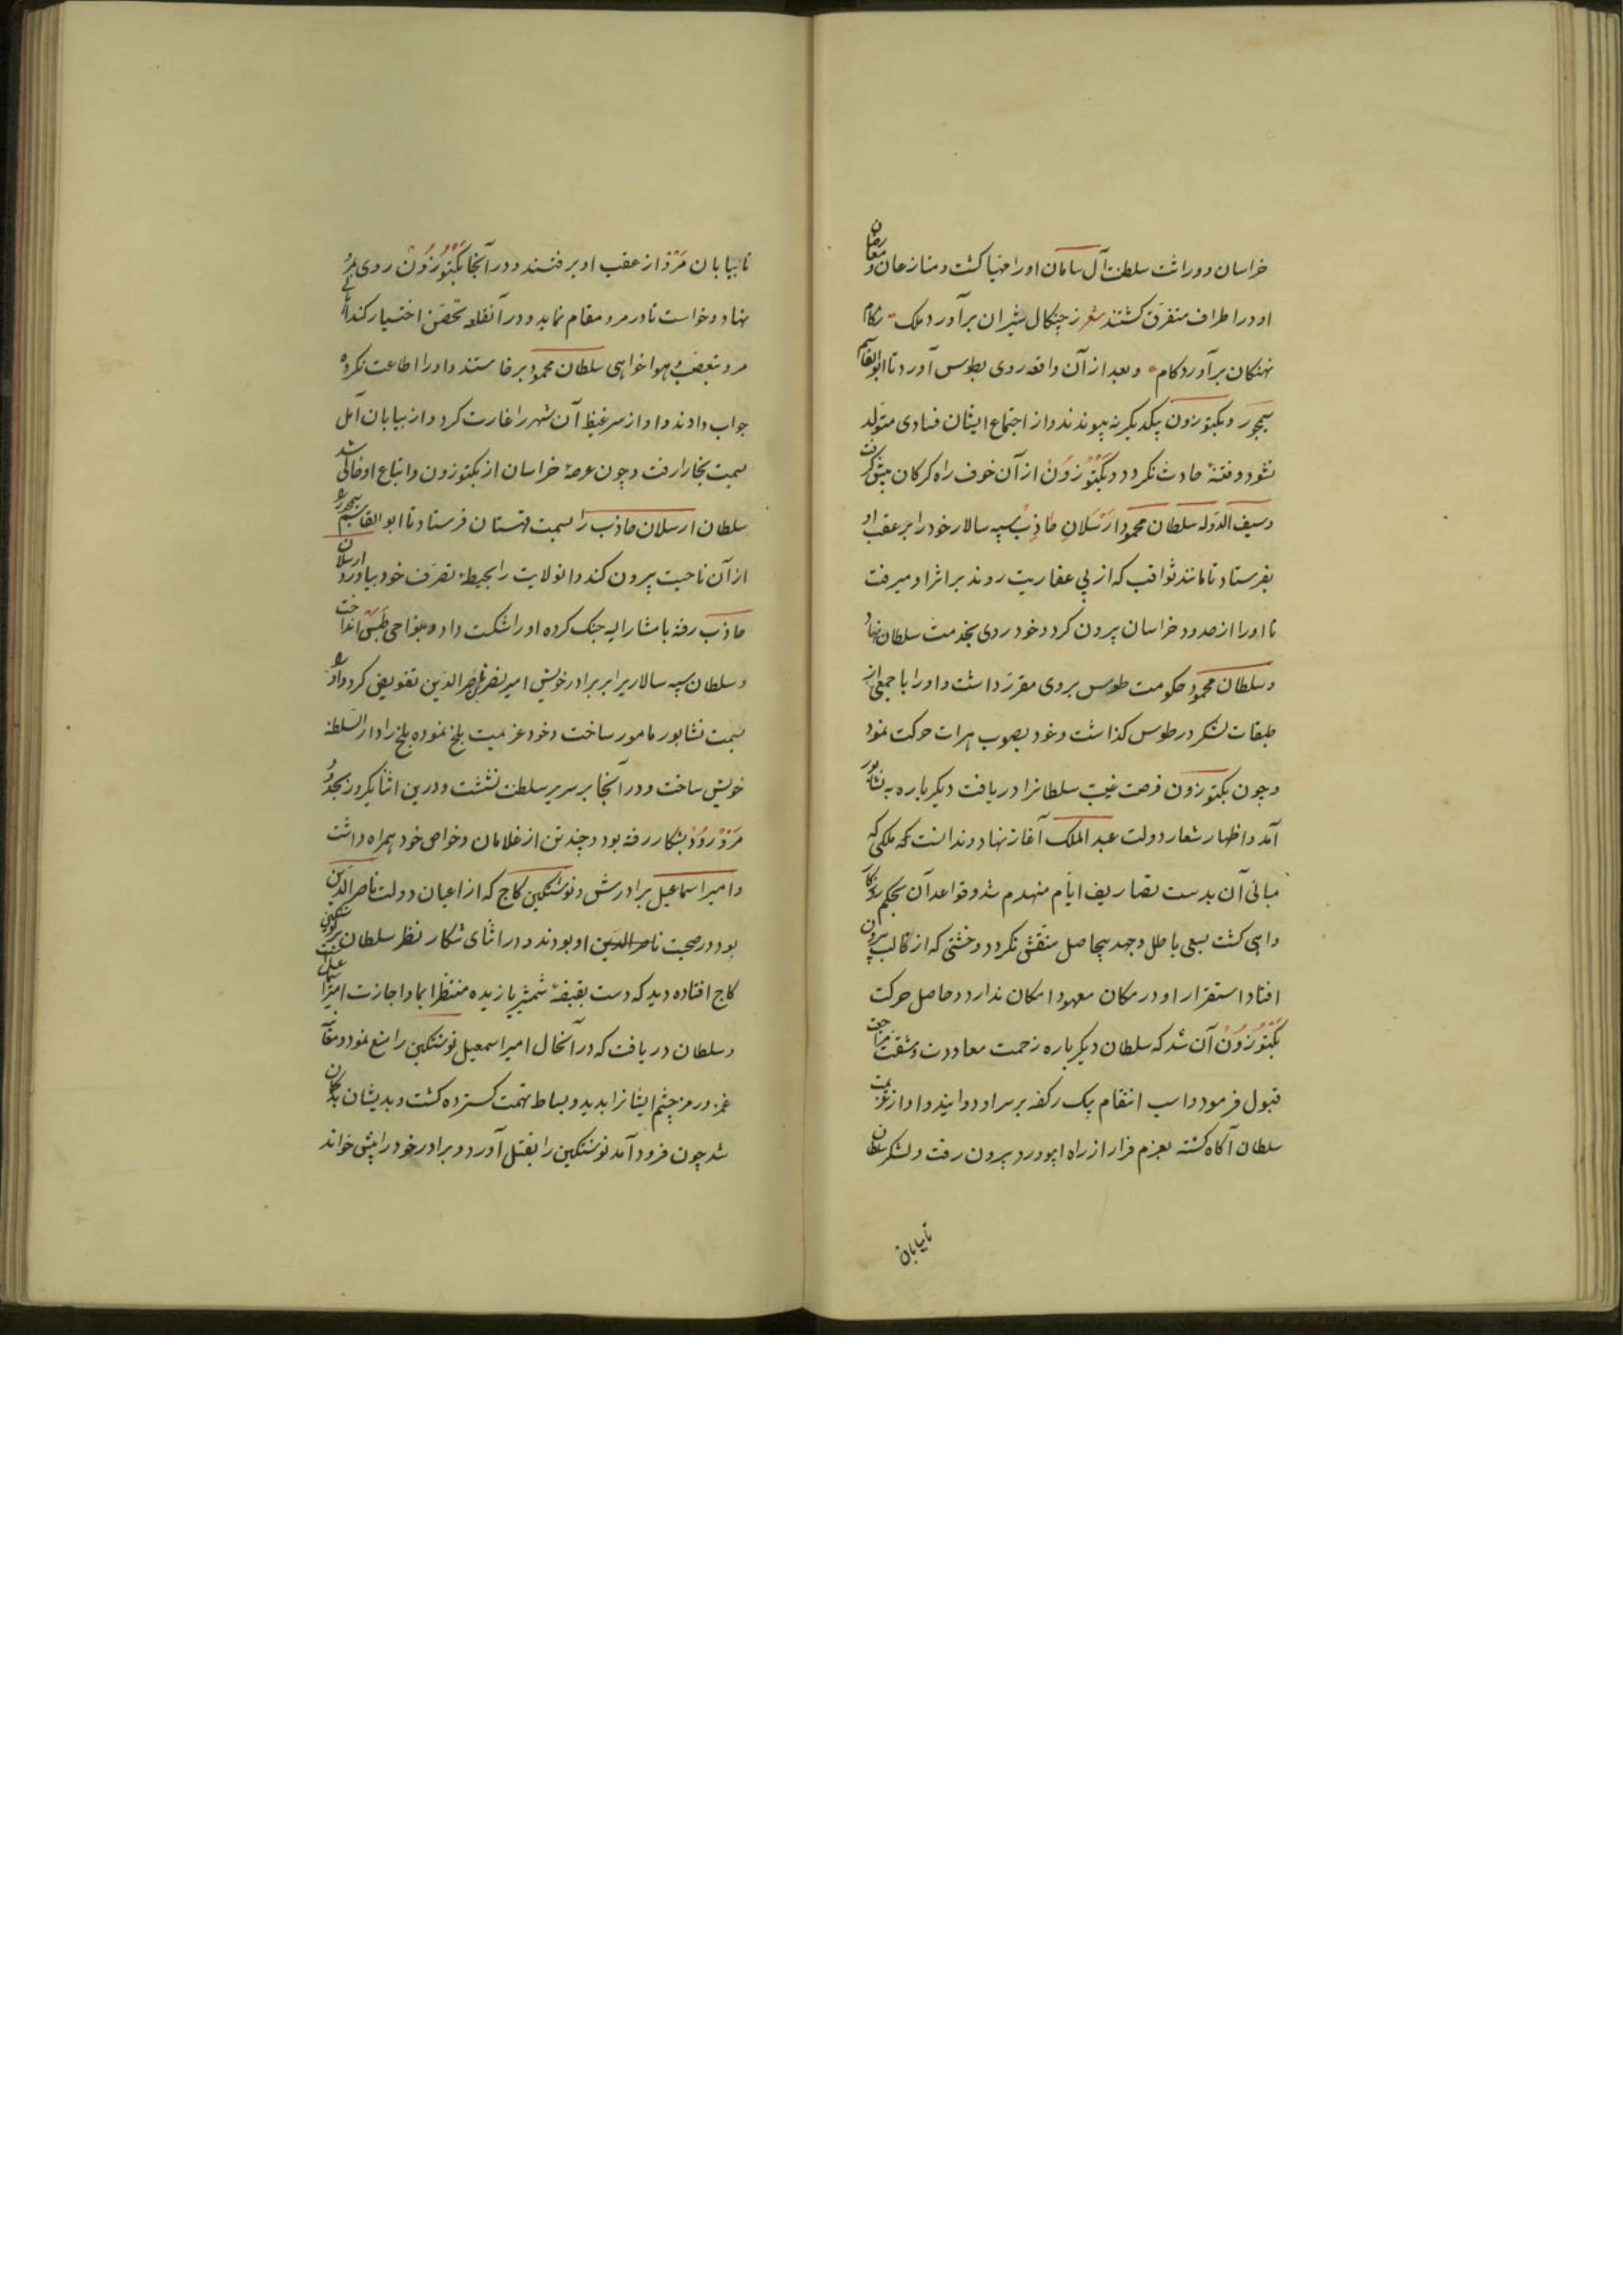 خراسان و وراثت سلطنت آل سامان اورا مهیا کشت و منازعان و معارضان
او در اطراف متفرق کشتند شعر ز چنکال شیران برآورد ملک ز کام
نهنکان برآورد کام و بعد از آن واقعه روی بطوس آورد تا ابوالقاسم
سیمجور و بکتوزون بیکدیکر نه پیوندند و از اجتماع ایشان فسادی متولد
نشود و فتنهٔ حادث نکردد و بکتوزون از آن خوف راه کرکان پیش کرفت
و سیف الدوله سلطان محمود ارسلان جاذب سپه سالار خود را بر عقب او
بفرستاد تا مانند ثواقب که از پی عفاریت روند بر اثر او میرفت
تا اورا از حدود خراسان بیرون کرد و خود روی بخدمت سلطان نهاد
و سلطان محمود حکومت طوس بر وی مقرر داشت و اورا با جمعی از
طبقات لشکر در طوس کذاشت و خود بصوب هرات حرکت نمود
و چون بکتوزون فرصت غیبت سلطانرا دریافت دیکر باره به نشابور
آمد و اظهار شعار دولت عبد الملک آغاز نهاد و ندانست که ملکی که
مبانی آن بدست تصاریف ایام منهدم شد و قواعد آن بحکم روزکار
واهی کشت بسعی باطل و جهد بیحاصل منتقش نکردد و خشتی که از قالب بیرون
افتاد استقرار او در مکان معهود امکان ندارد و حاصل حرکت
بکتوزون آن شد که سلطان دیکر باره زحمت معاودت و مشقت مراجعت
قبول فرمود و اسب انتقام بیک رکضه بر سر او دوانید و او از عزیمت
سلطان آکاه کشته بعزم فرار از راه ابیورد بیرون رفت و لشکر سلطان
تا بیابان
تا بیابان مرو از عقب او برفتند و در آنجا بکتوزون روی بمرو
نهاد و خواست تا در مرو مقام نماید و در آنقلعه تحصن اختیار کند اهالی
مرو بتعصب و هواخواهی سلطان محمود برخاستند و اورا اطاعت نکرده
جواب دادند و او از سر غیظ آن شهر را غارت کرد و از بیابان آمل
بسمت بخارا رفت و چون عرصهٔ خراسان از بکتوزون و اتباع او خالی شد
سلطان ارسلان جاذب را بسمت قهستان فرستاد تا ابو القاسم سیمجور را
از آن ناحیت بیرون کند و انولایت را بحیطهٔ تصرف خود بیاورد ارسلان
جاذب رفته با مشارالیه جنک کرده اورا شکست داد و بنواحی طبس انداخت
و سلطان سپه سالاریرا بر برادر خویش امیر نصر بن ناصر الدین تفویض کرد و اورا
بسمت نشابور مامور ساخت و خود عزیمت بلخ نموده بلخ را دار السلطنه
خویش ساخت و در آنجا بر سریر سلطنت نشست و درین اثنا یکروز بحدود
مرو رود بشکار رفته بود و چند تن از غلامان و خواص خود همراه داشت
و امیر اسماعیل برادرش و نوشتکین کاج که از اعیان دولت ناصر الدین
بود در صحبت ناصر الدین او بودند و در اثنای شکار نظر سلطان بر نوشتکین
کاج افتاده دید که دست بقبضهٔ شمشیر یازیده منتظر ایما و اجازت امیر اسماعیل است
و سلطان دریافت که در آنحال امیر اسمعیل نوشتکین را منع نمود و مقام
غمز و رمز چشم ایشانرا بدید و بساط تهمت کسترده کشت و بدیشان بدکمان
شد چون فرود آمد نوشتکین را بقتل آورد و برادر خود را پیش خواند